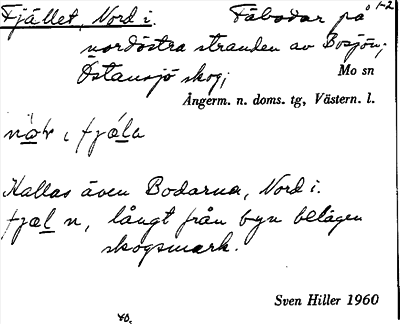 Fjället, Nord i. Fäbodar på 1-2
nordöstra stranden av Bosjön;
Östansjö skog; Mo sn
Ångerm. n. doms. tg, Västern. l.
Kallas även Bodarna, Nord i.
fjæl n, långt från byn belägen
skogsmark.
Sven Hiller 1960